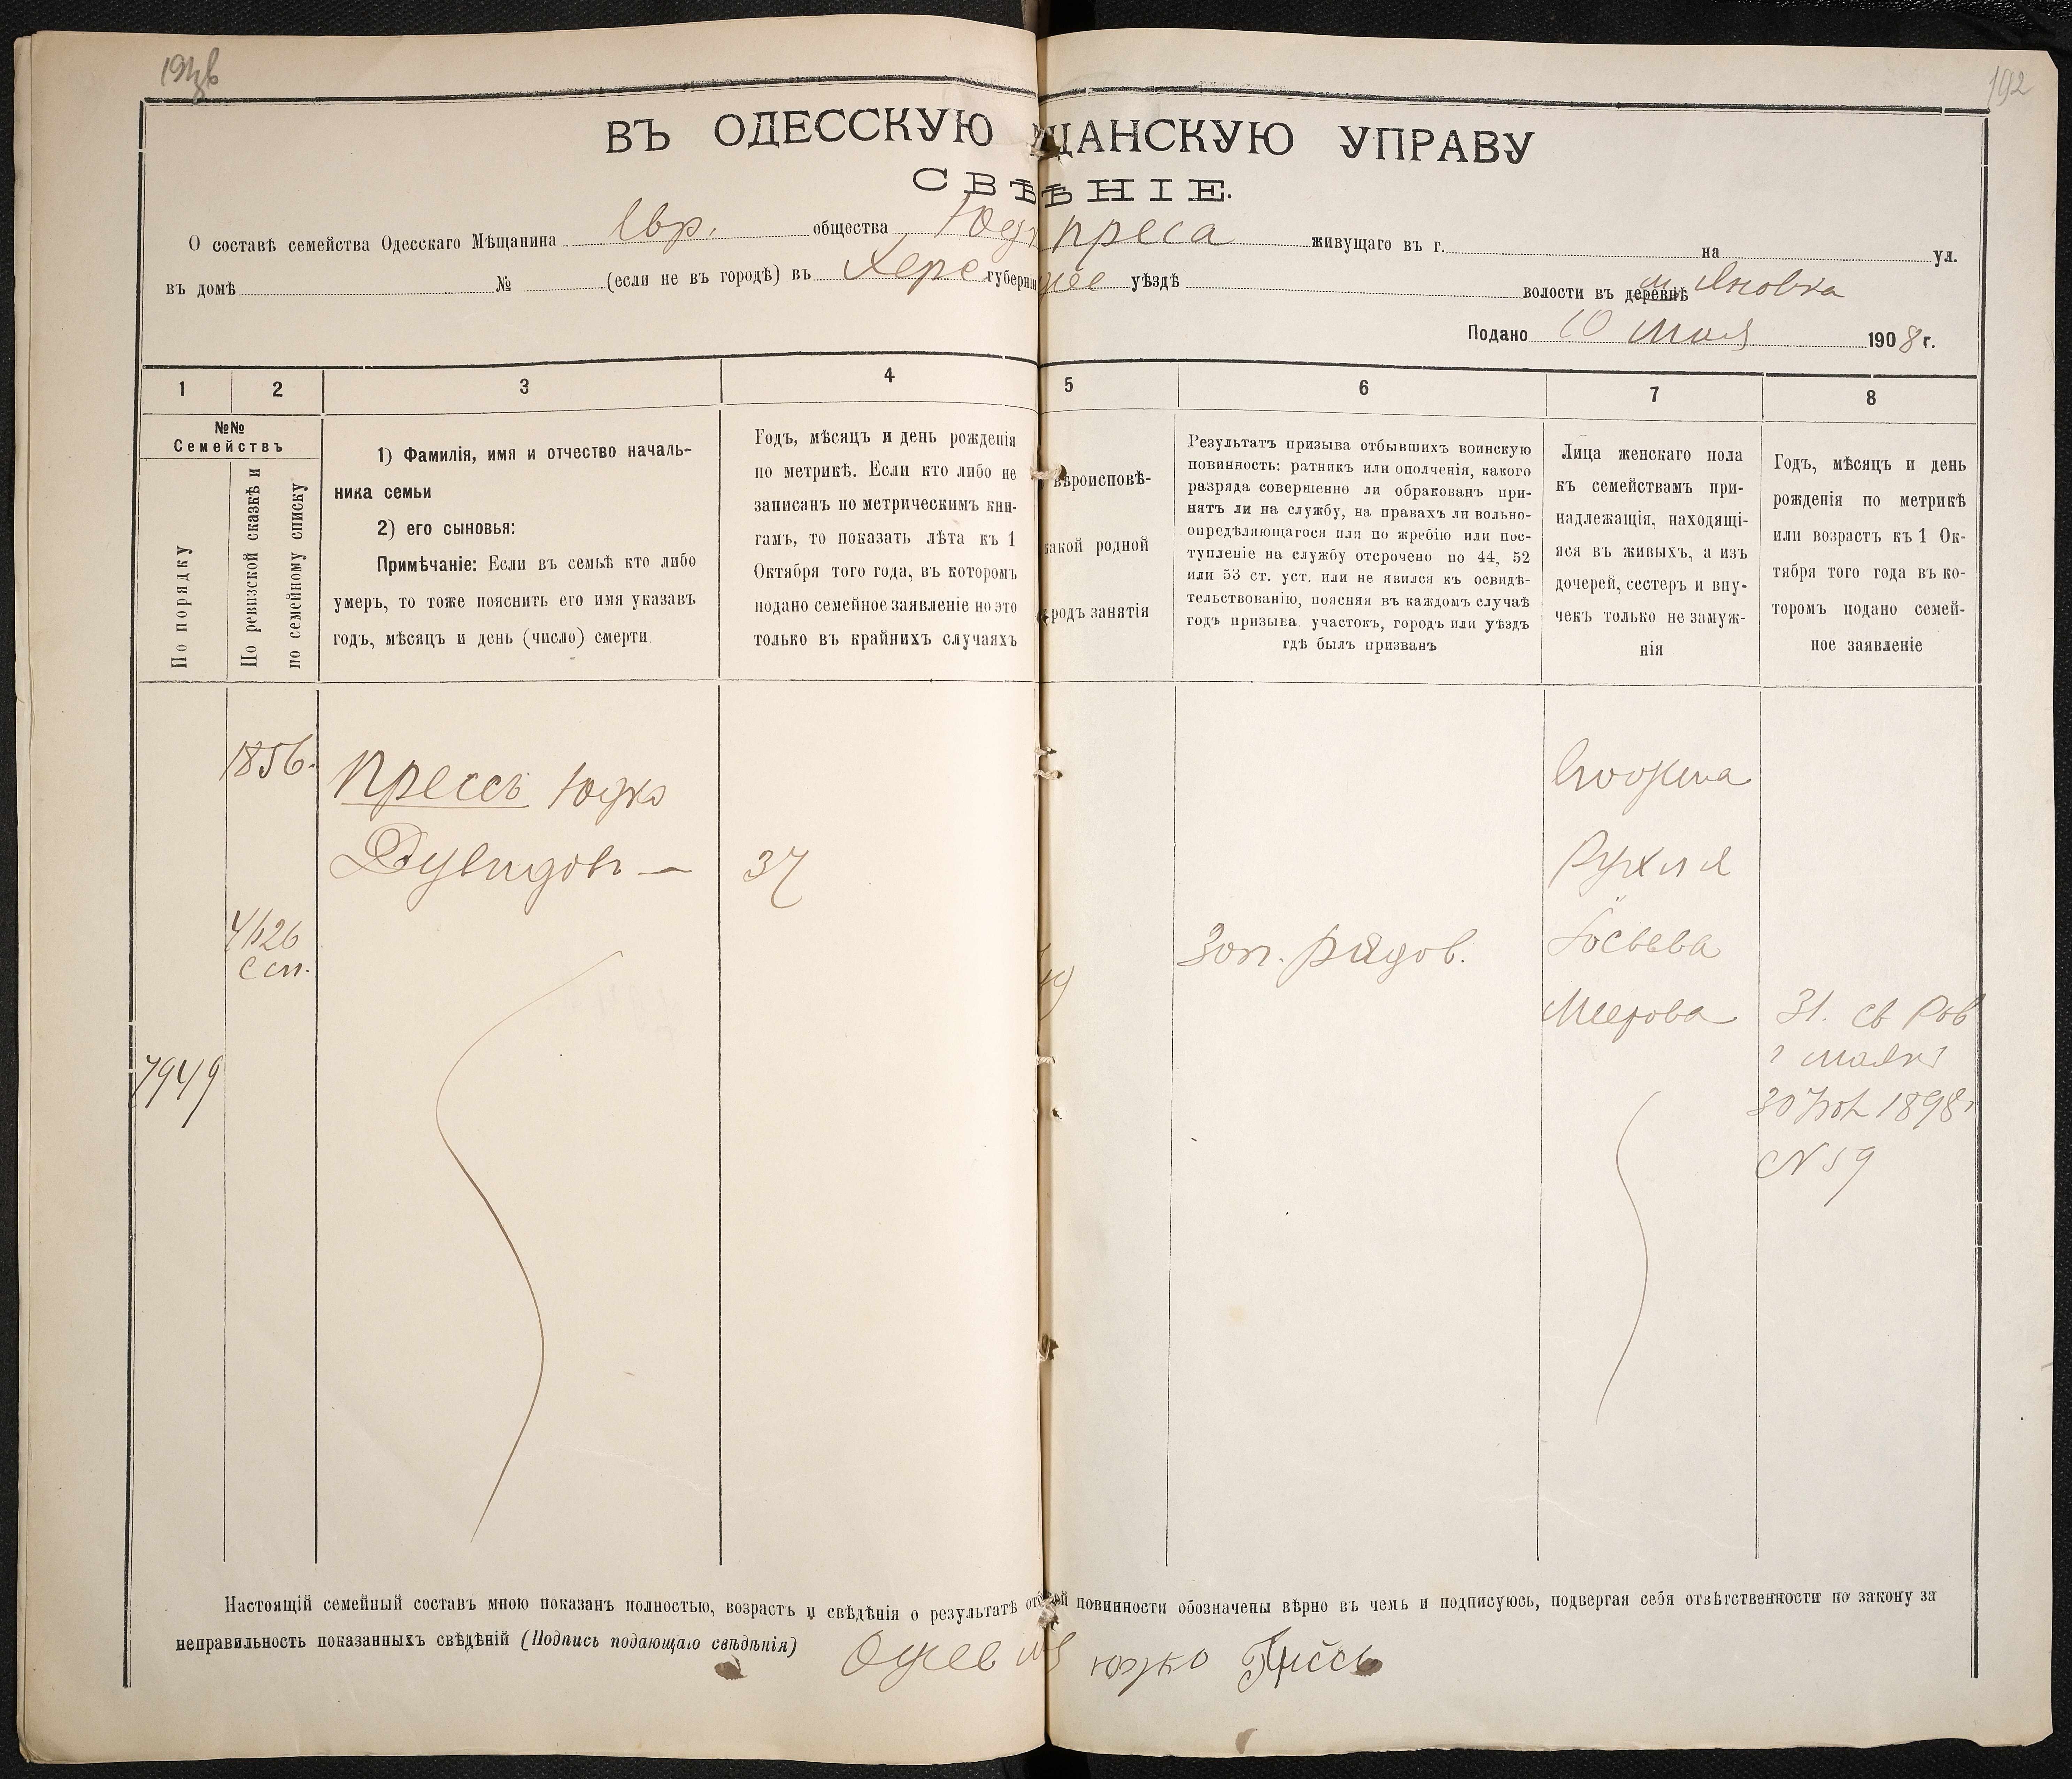 192
ВЪ ОДЕССКУЮ ЩАНСКУЮ УПРАВУ
СВѢ ѢНІЕ.
О составѣ семейства Одесскаго Мѣщанина Евр. общества Юд Преса живущаго въ г. на ул.
въ домѣ № (если не въ городѣ) въ Херс губерніи уѣздѣ волости въ деревнѣ м. Яновка
Подано 10 Мая 1908 г.
1 2 3 4 5 6 7 8
№№
Семействъ
По порядку
По ревизской сказкѣ и
по семейному списку
1) Фамилія, имя и отчество началь-
ника семьи
2) его сыновья:
Примѣчаніе: Если въ семьѣ кто либо
умеръ, то тоже пояснить его имя указавъ
годъ, мѣсяцъ и день (число) смерти.
Годъ, мѣсяцъ и день рожденія
по метрикѣ. Если кто либо не
записанъ по метрическимъ кни-
гамъ, то показать лѣта къ 1
Октября того года, въ которомъ
подано семейное заявленіе но это
только въ крайнихъ случаяхъ
вѣроисповѣ-
какой родной
родъ занятія
Результатъ призыва отбывшихъ воинскую
повинность: ратникъ или ополченія, какого
разряда совершенно ли обракованъ при-
нятъ ли на службу, на правахъ ли вольно-
опредѣляющагося или по жребію или пос-
тупленіе на службу отсрочено по 44, 52
или 53 ст. уст. или не явился къ освидѣ-
тельствованію, поясняя въ каждомъ случаѣ
годъ призыва участокъ, городъ или уѣздъ
гдѣ былъ призванъ
Лица женскаго пола
къ семействамъ при-
надлежащія, находящі-
яся въ живыхъ, а изъ
дочерей, сестеръ и вну-
чекъ только не замуж-
нія
Годъ, мѣсяцъ и день
рожденія по метрикѣ
или возрастъ къ 1 Ок-
тября того года въ ко-
торомъ подано семей-
ное заявленіе
1856.
Прессъ Юдко
Дувидовъ — 37
4626
с сп.
7949
Зап. рядов.
его жена
Рухля
Іосьева
Меерова
31. св Рав
г Маяки
30 1898 г
N 59
Настоящій семейный составъ мною показанъ полностью, возрастъ и свѣдѣнія о результатѣ от ой повинности обозначены вѣрно въ чемъ и подписуюсь, подвергая себя отвѣтственности по закону за
неправильность показанныхъ свѣдѣній (Подпись подающаго свѣдѣнія) Юдко Прессъ